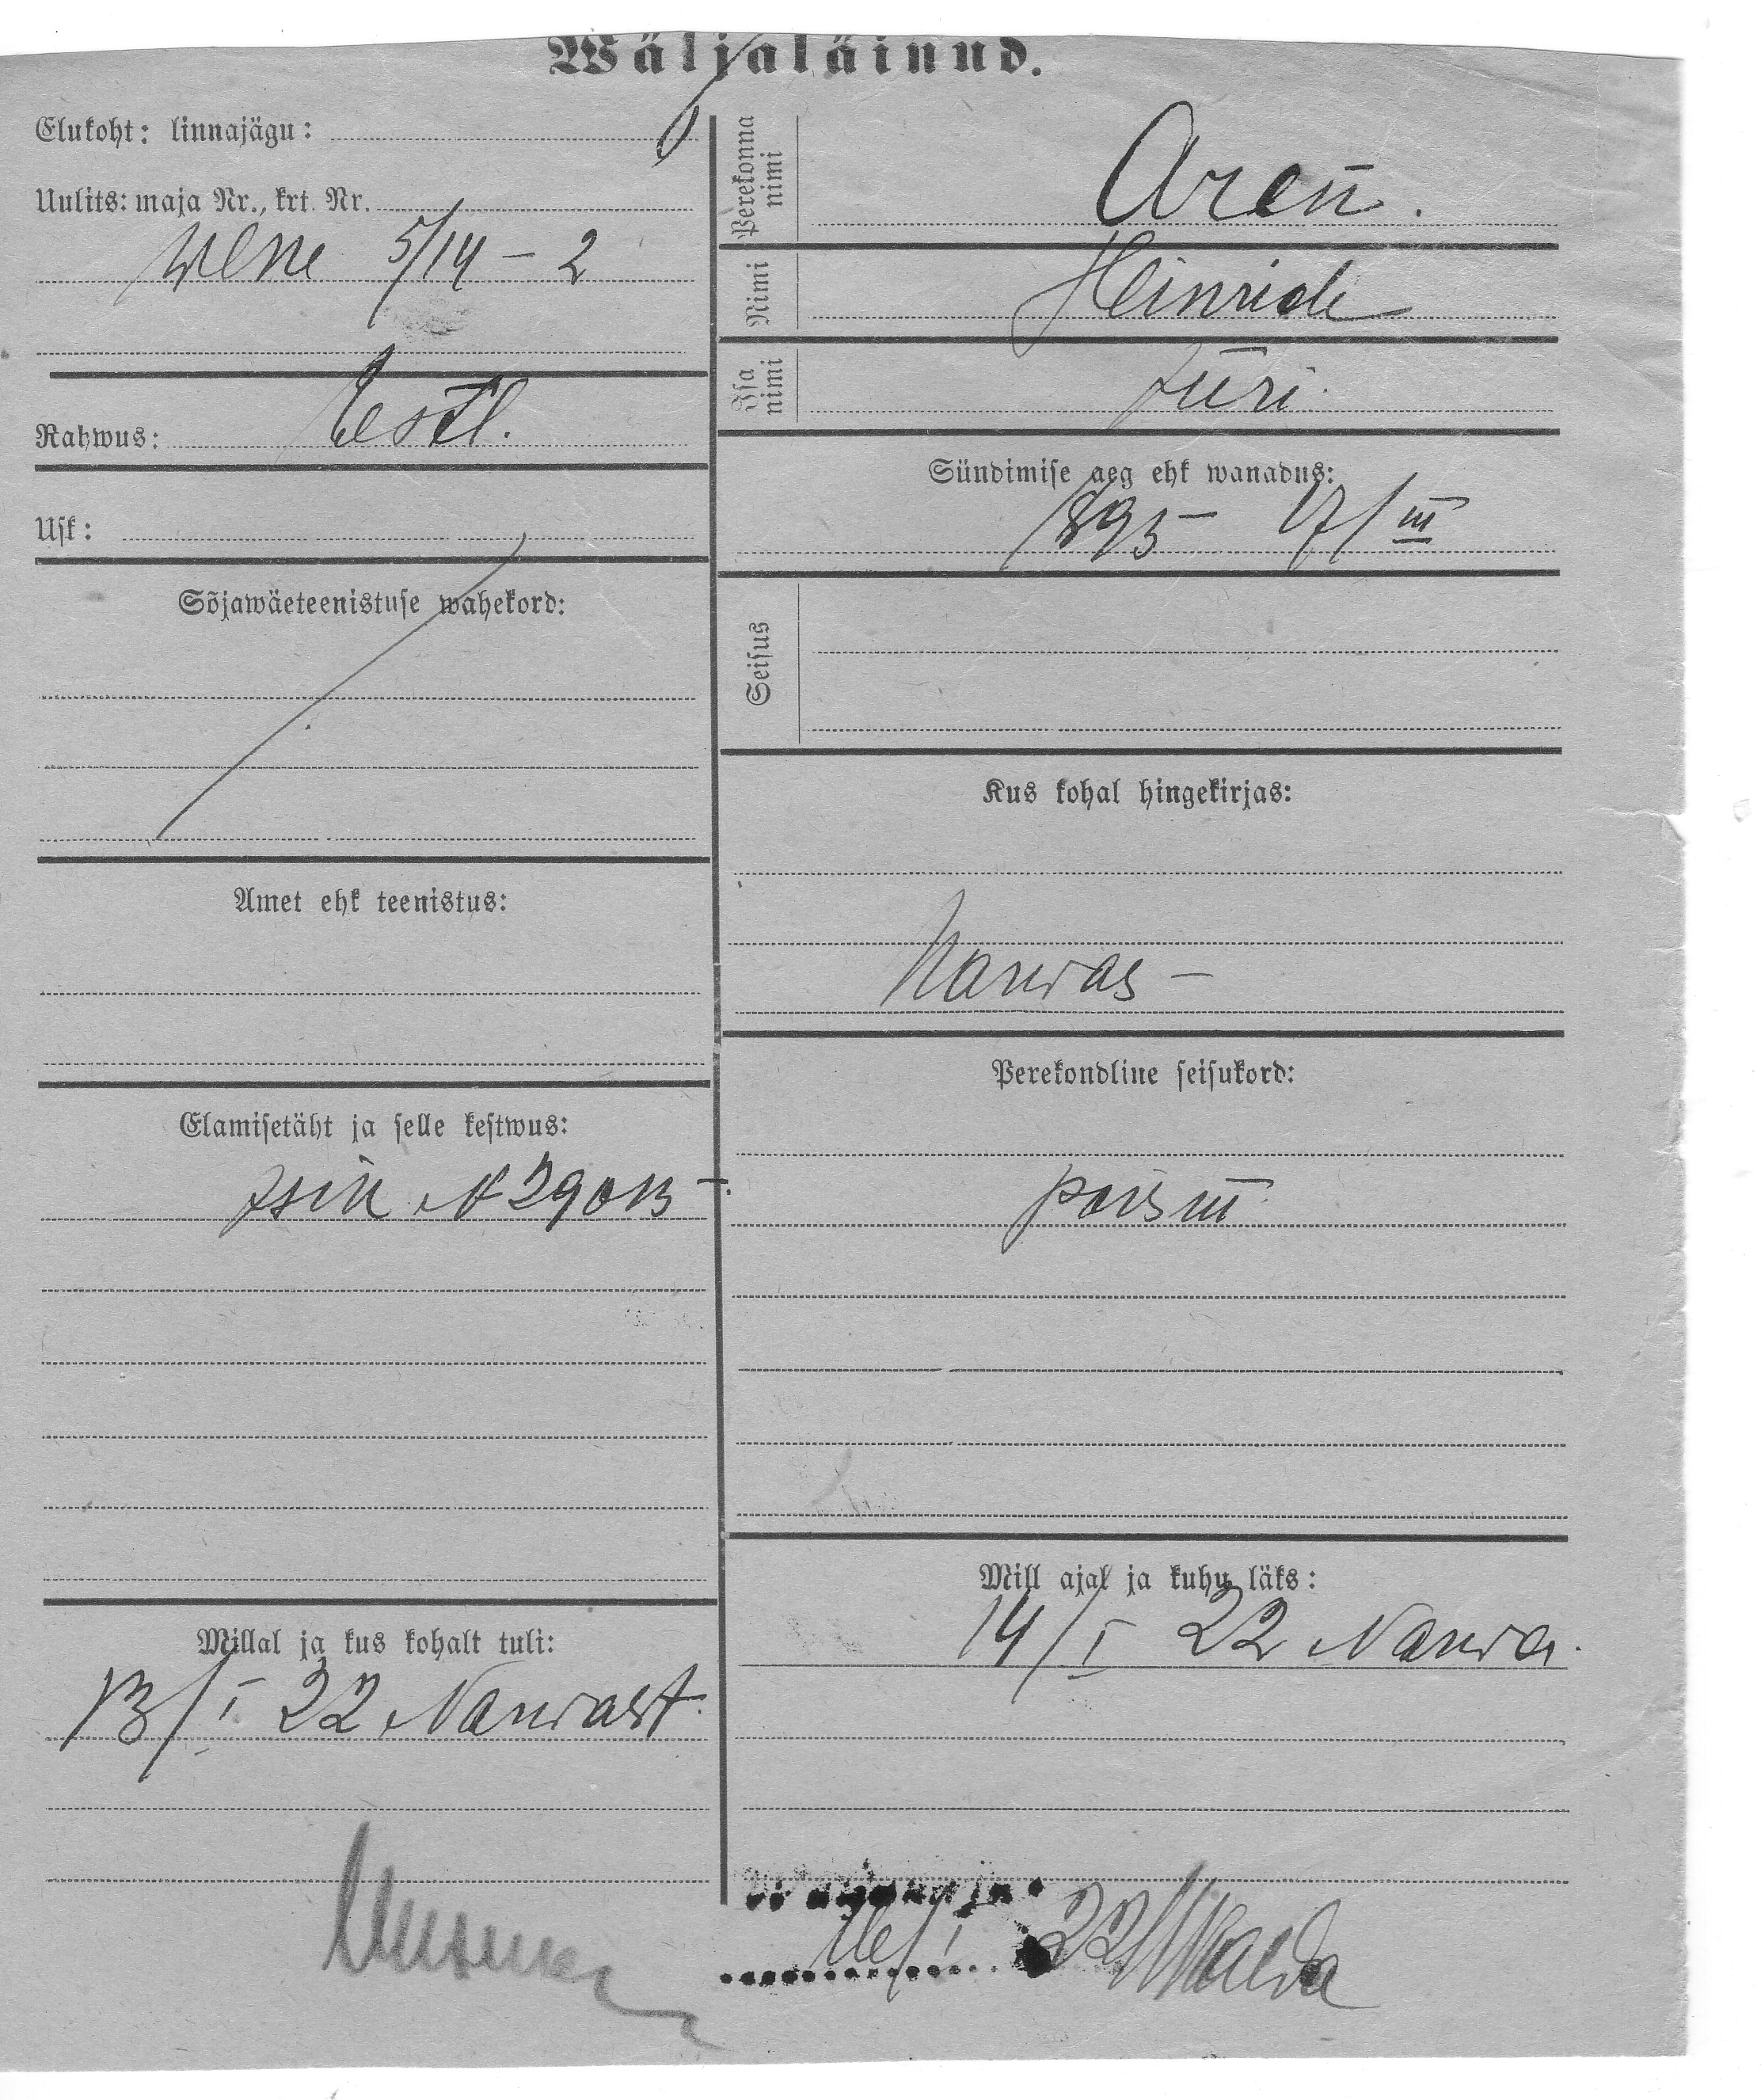 Wäljaläinud.
Elukoht: linnajägu:
Uulits: maja Nr., krt. Nr.
Wene 5/14 – 2
Rahwus: Estl.
Usk:
Sõjawäeteenistuse wahekord:
Amet ehk teenistus:
Elamisetäht ja selle kestwus:
N 29013
Millal ja kus kohalt tuli:
13/I 22 Narwast.
Perekonna nimi
Aren.
Nimi Heinrich
Isa nimi Jüri
Sündimise aeg ehk wanadus:
1895 – 17/III
Seisus
Kus kohal hingekirjas:
Narwas –
Perekondline seisukord:
poism
Mill ajal ja kuhu läks:
14/I 22 Narva.
22